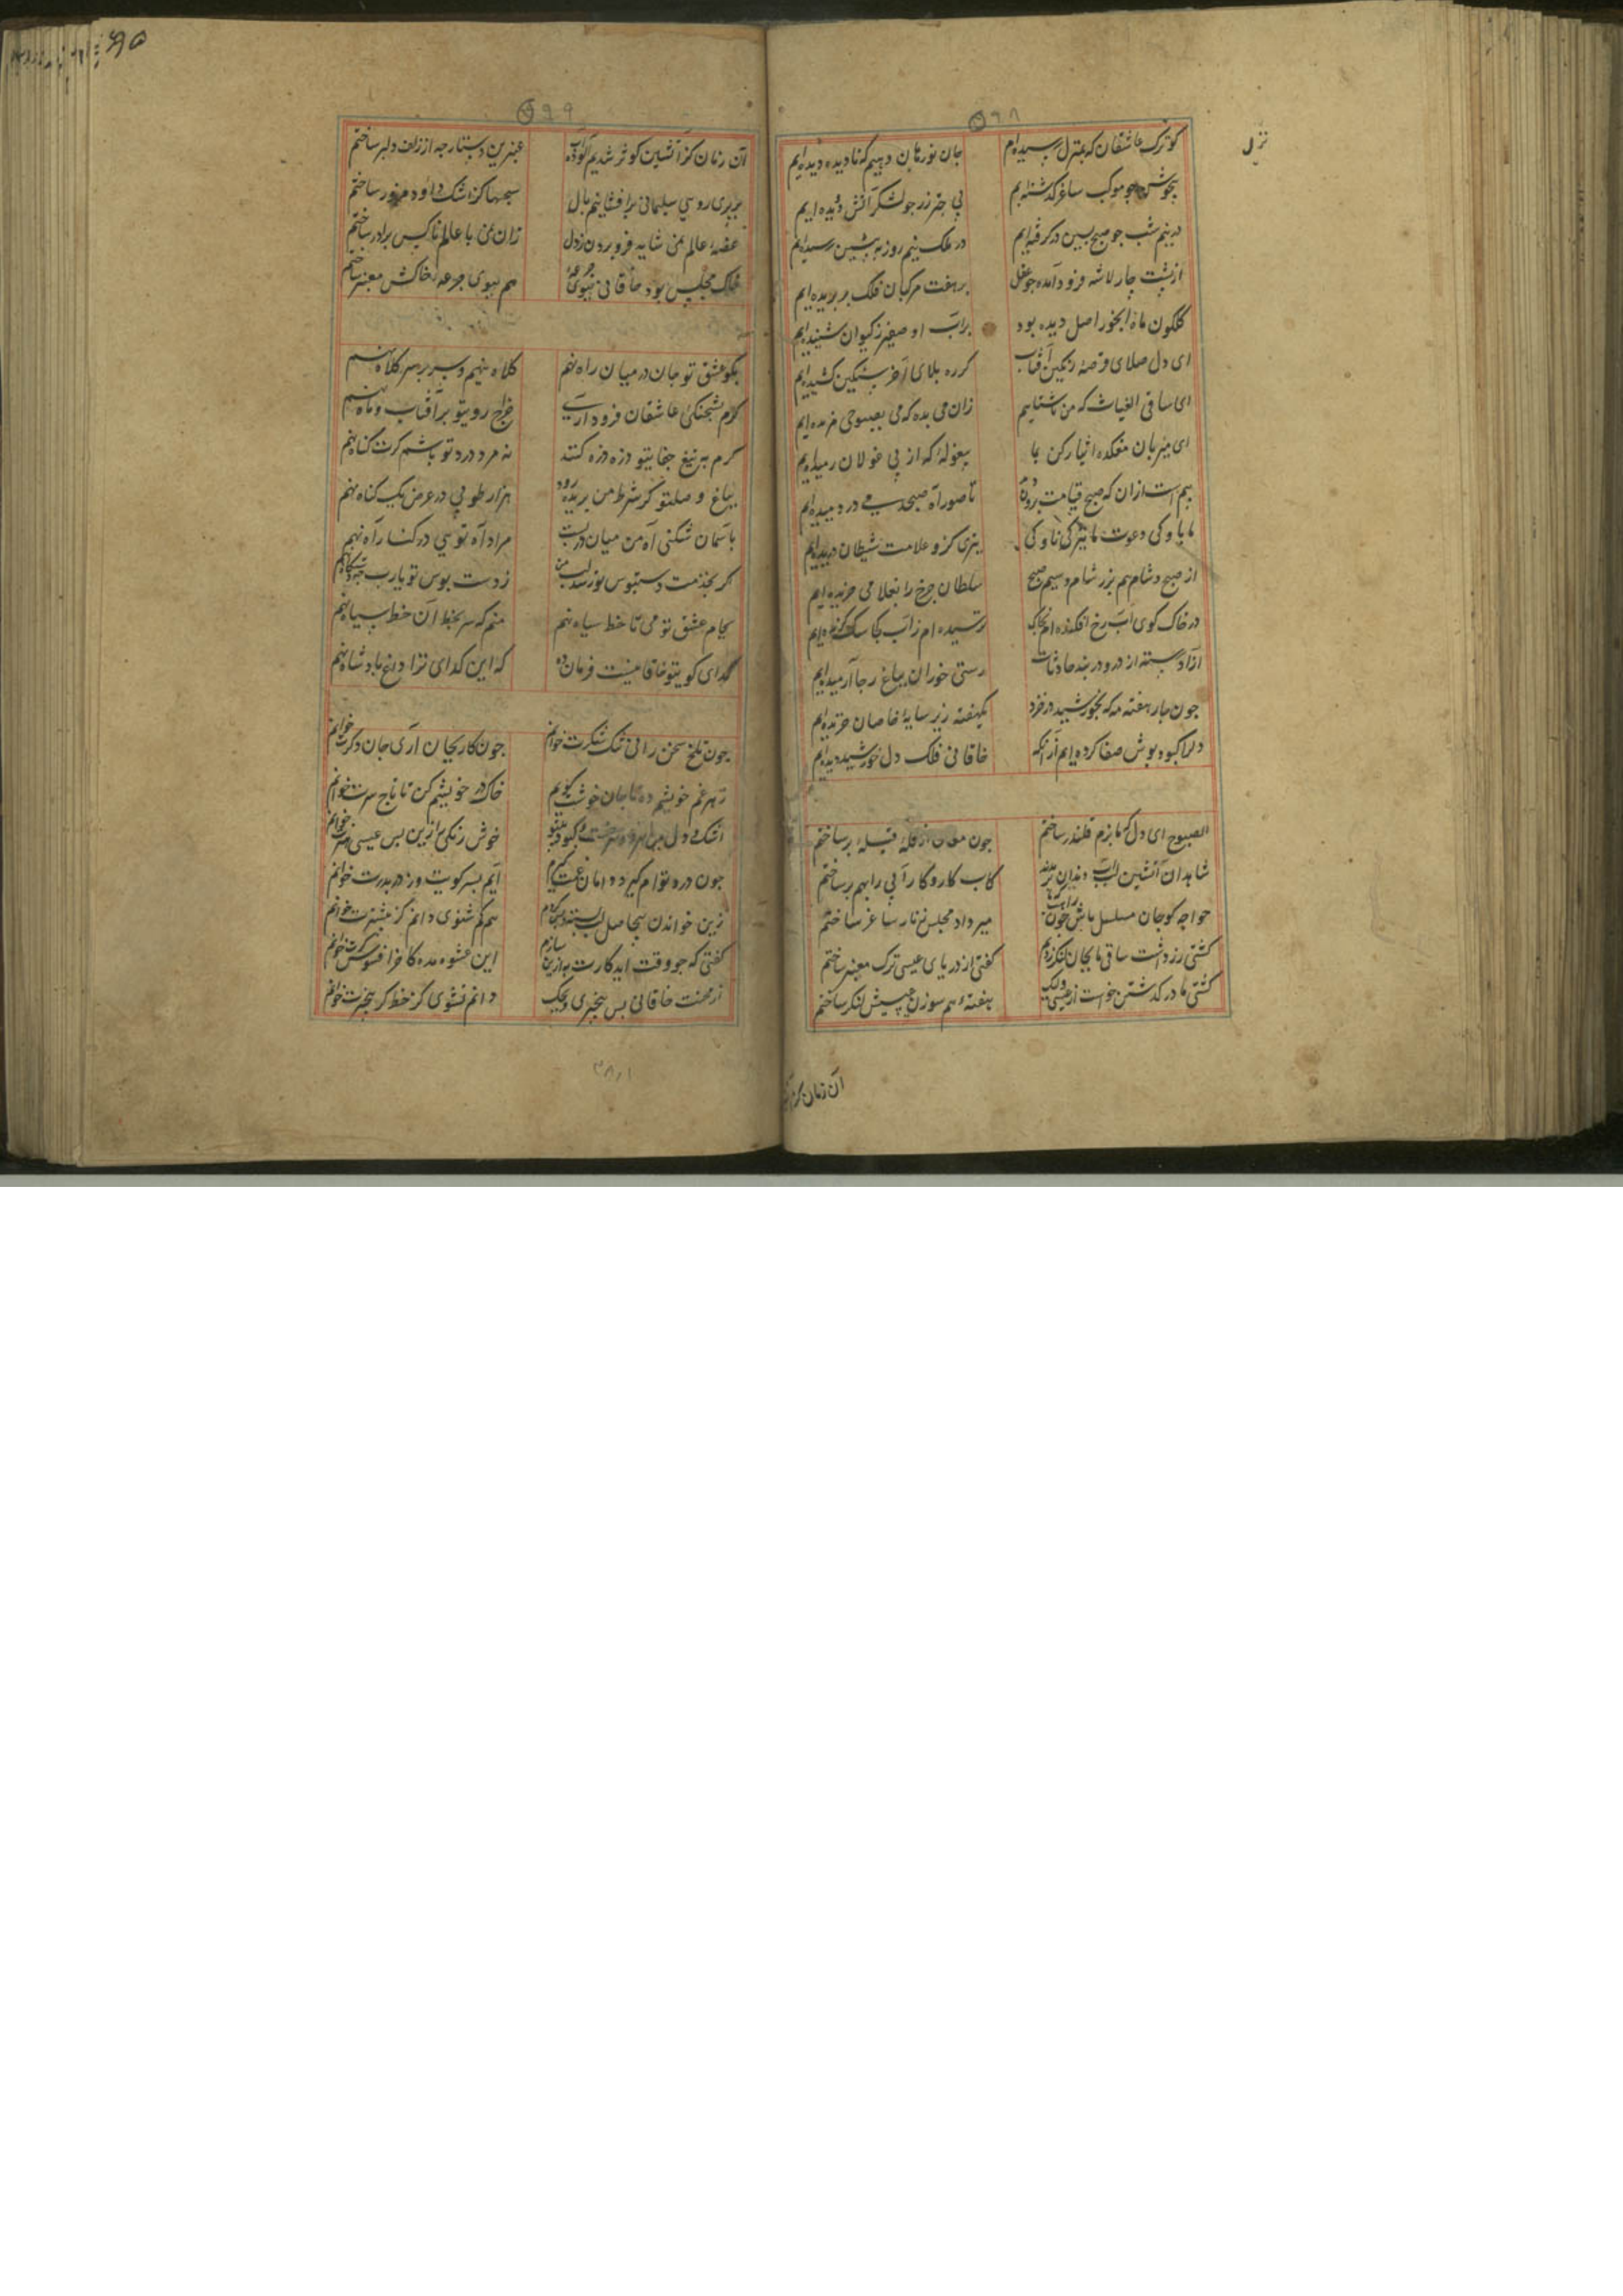 ۶۹۸
نزل
کوترک عاشقان که بمنزل رسیده‌ام جان نورهان دهیم که نادیده دیده‌ایم
چو موکب ساغر گذشته‌ایم بی چتر زر جو لشکر آتش دویده‌ایم
در نیم شب جو صبح پسین در گرفته‌ایم در ملک نیم روز به پیشین رسیده‌ایم
از پشت چار لاشه فرود آمده جو عقل بر هفت مرکبان فلک بر بریده‌ایم
کلکون ما ز آبخور اصل دیده بود بر آب او صفیر ز کیوان شنیده‌ایم
ای دل صلای قرصه رنکین آفتاب کرده بلای آخر سنکین کشیده‌ایم
ای ساقی الغیاث که من ناشتاییم زان می بده که می بصبوحی مزیده‌ایم
ای میزبان میکده ایثار کن بما بیغوله که از پی غولان رمیده‌ایم
بیم است ازان که صبح قیامت برون تا صور آه صبحدمی در دمیده‌ایم
ما باوکی دعوت ما نیز کی ناوکی بنری کزو علامت شیطان دریده‌ایم
از صبح و شام هم بزر شام و سیم صبح سلطان چرخ را بغلامی خریده‌ایم
در خاک کوی آب رخ افکنده‌ام بخاک ترسیده‌ام ز آب کجا سک گزیده‌ایم
آزاد رسته از در و دربند حادثات رستی خوران بباغ رجا آرمیده‌ایم
جون جار هفته مه که بخورشید در خزد یکهفته زیر سایه خاصان خزیده‌ایم
دل را کبود پوش صفا کرده‌ایم از آنکه خاقانی فلک دل خورشید دیده‌ایم
الصبوح ای دل که ما بزم قلندر ساختم جون مغان از قله قبله بر ساختم
شاهدان آتشین لب آب دندان کاب کار و کار آبی را بهم بر ساختم
خواجه کو جان مسلسل باش میر داد مجلس ز نار ساغر ساختم
کشتی رز داشت ساقی ما بجان لنکر زدیم کفتی از دریای عیسی ترک معبر ساختم
کشتی ما در گذشتن خواست از عیسی ولیک هفته هم سوزن عیسیش لنکر ساختم
آن زمان کز
۶۹۹
آن زمان کز آتشین کوثر شدیم آلوده عنبرین دستارچه از زلف دلبر ساختم
بر پری روی سلیمانی برافشانیم بال سبحها کز اشک داود ساختم
غصه عالم نمی شاید فرو بردن ز دل زان می با عالم ناکس برابر ساختم
خاک مجلس بود خاقانی ببوی جرعه هم ببوی جرعه خاکش معنبر ساختم
بکو عشق تو جان در میان راه نهم کلاه بنهم و سر بر سر کلاه نهم
کرم بشحنکی عاشقان فرود آری خراج روی تو بر آفتاب و ماه نهم
کرم به تیغ جفای تو ذره ذره کنند نه مرد درد تو باشم کرت کناه نهم
بباغ وصل تو کر شرط من بریده رود هزار طوبی در عرض یک کیاه نهم
باسمان شکنی آه من میان دربست مراد آه توسی در کنار آه نهم
کر بخدمت دستبوس تو رسد لب من ز دست بوس تو یارب
بجام عشق تو می تا خط سیاه نهم منم که سر بخط آن خط سیاه نهم
کدای کوی تو خاقانیست فرمان ده که این کدای ترا داغ پادشاه نهم
جون تلخ سخن رانی تنک شکرت خوانم جون کار بجان آری جان دکرت خوانم
زهر غم خویشم ده تا جان خوشت کویم خاک در خویشم کن تا تاج سرت خوانم
اشک دل سرخست و کبود خوش رنکرزی زین پس عیسی هنرت خوانم
جون درد توام کیرد دامان غمت کیرم آیم بسر کویت وز در بدرت خوانم
زین خواندن بیحاصل لب بسته و کردم هم کم شنوی دانم کر بیشترت خوانم
کفتی که جو وقت آید کارت به ازین سازم این عشوه مده کاخر افسوس کرت خوانم
از محنت خاقانی بس بیخبری ویحک دانم نشوی کر خط کر بیخبرت خوانم